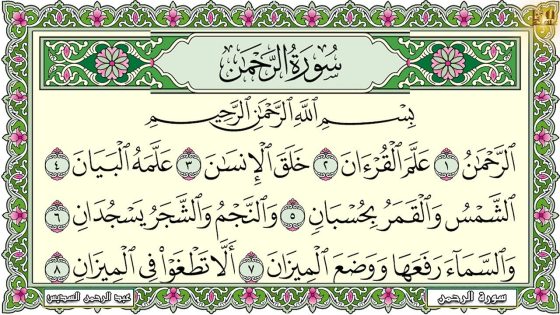 سُورَةُ الرَّحْمَٰن
بِسْمِ اللَّهِ الرَّحْمَٰنِ الرَّحِيمِ
الرَّحْمَٰنُ ١ عَلَّمَ الْقُرْءَانَ ٢ خَلَقَ الْإِنسَٰنَ ٣ عَلَّمَهُ الْبَيَانَ ٤
الشَّمْسُ وَالْقَمَرُ بِحُسْبَانٍ ٥ وَالنَّجْمُ وَالشَّجَرُ يَسْجُدَانِ ٦
وَالسَّمَآءَ رَفَعَهَا وَوَضَعَ الْمِيزَانَ ٧ أَلَّا تَطْغَوْا۟ فِى الْمِيزَانِ ٨
سورة الرحمن
عبد الرحمن السديس